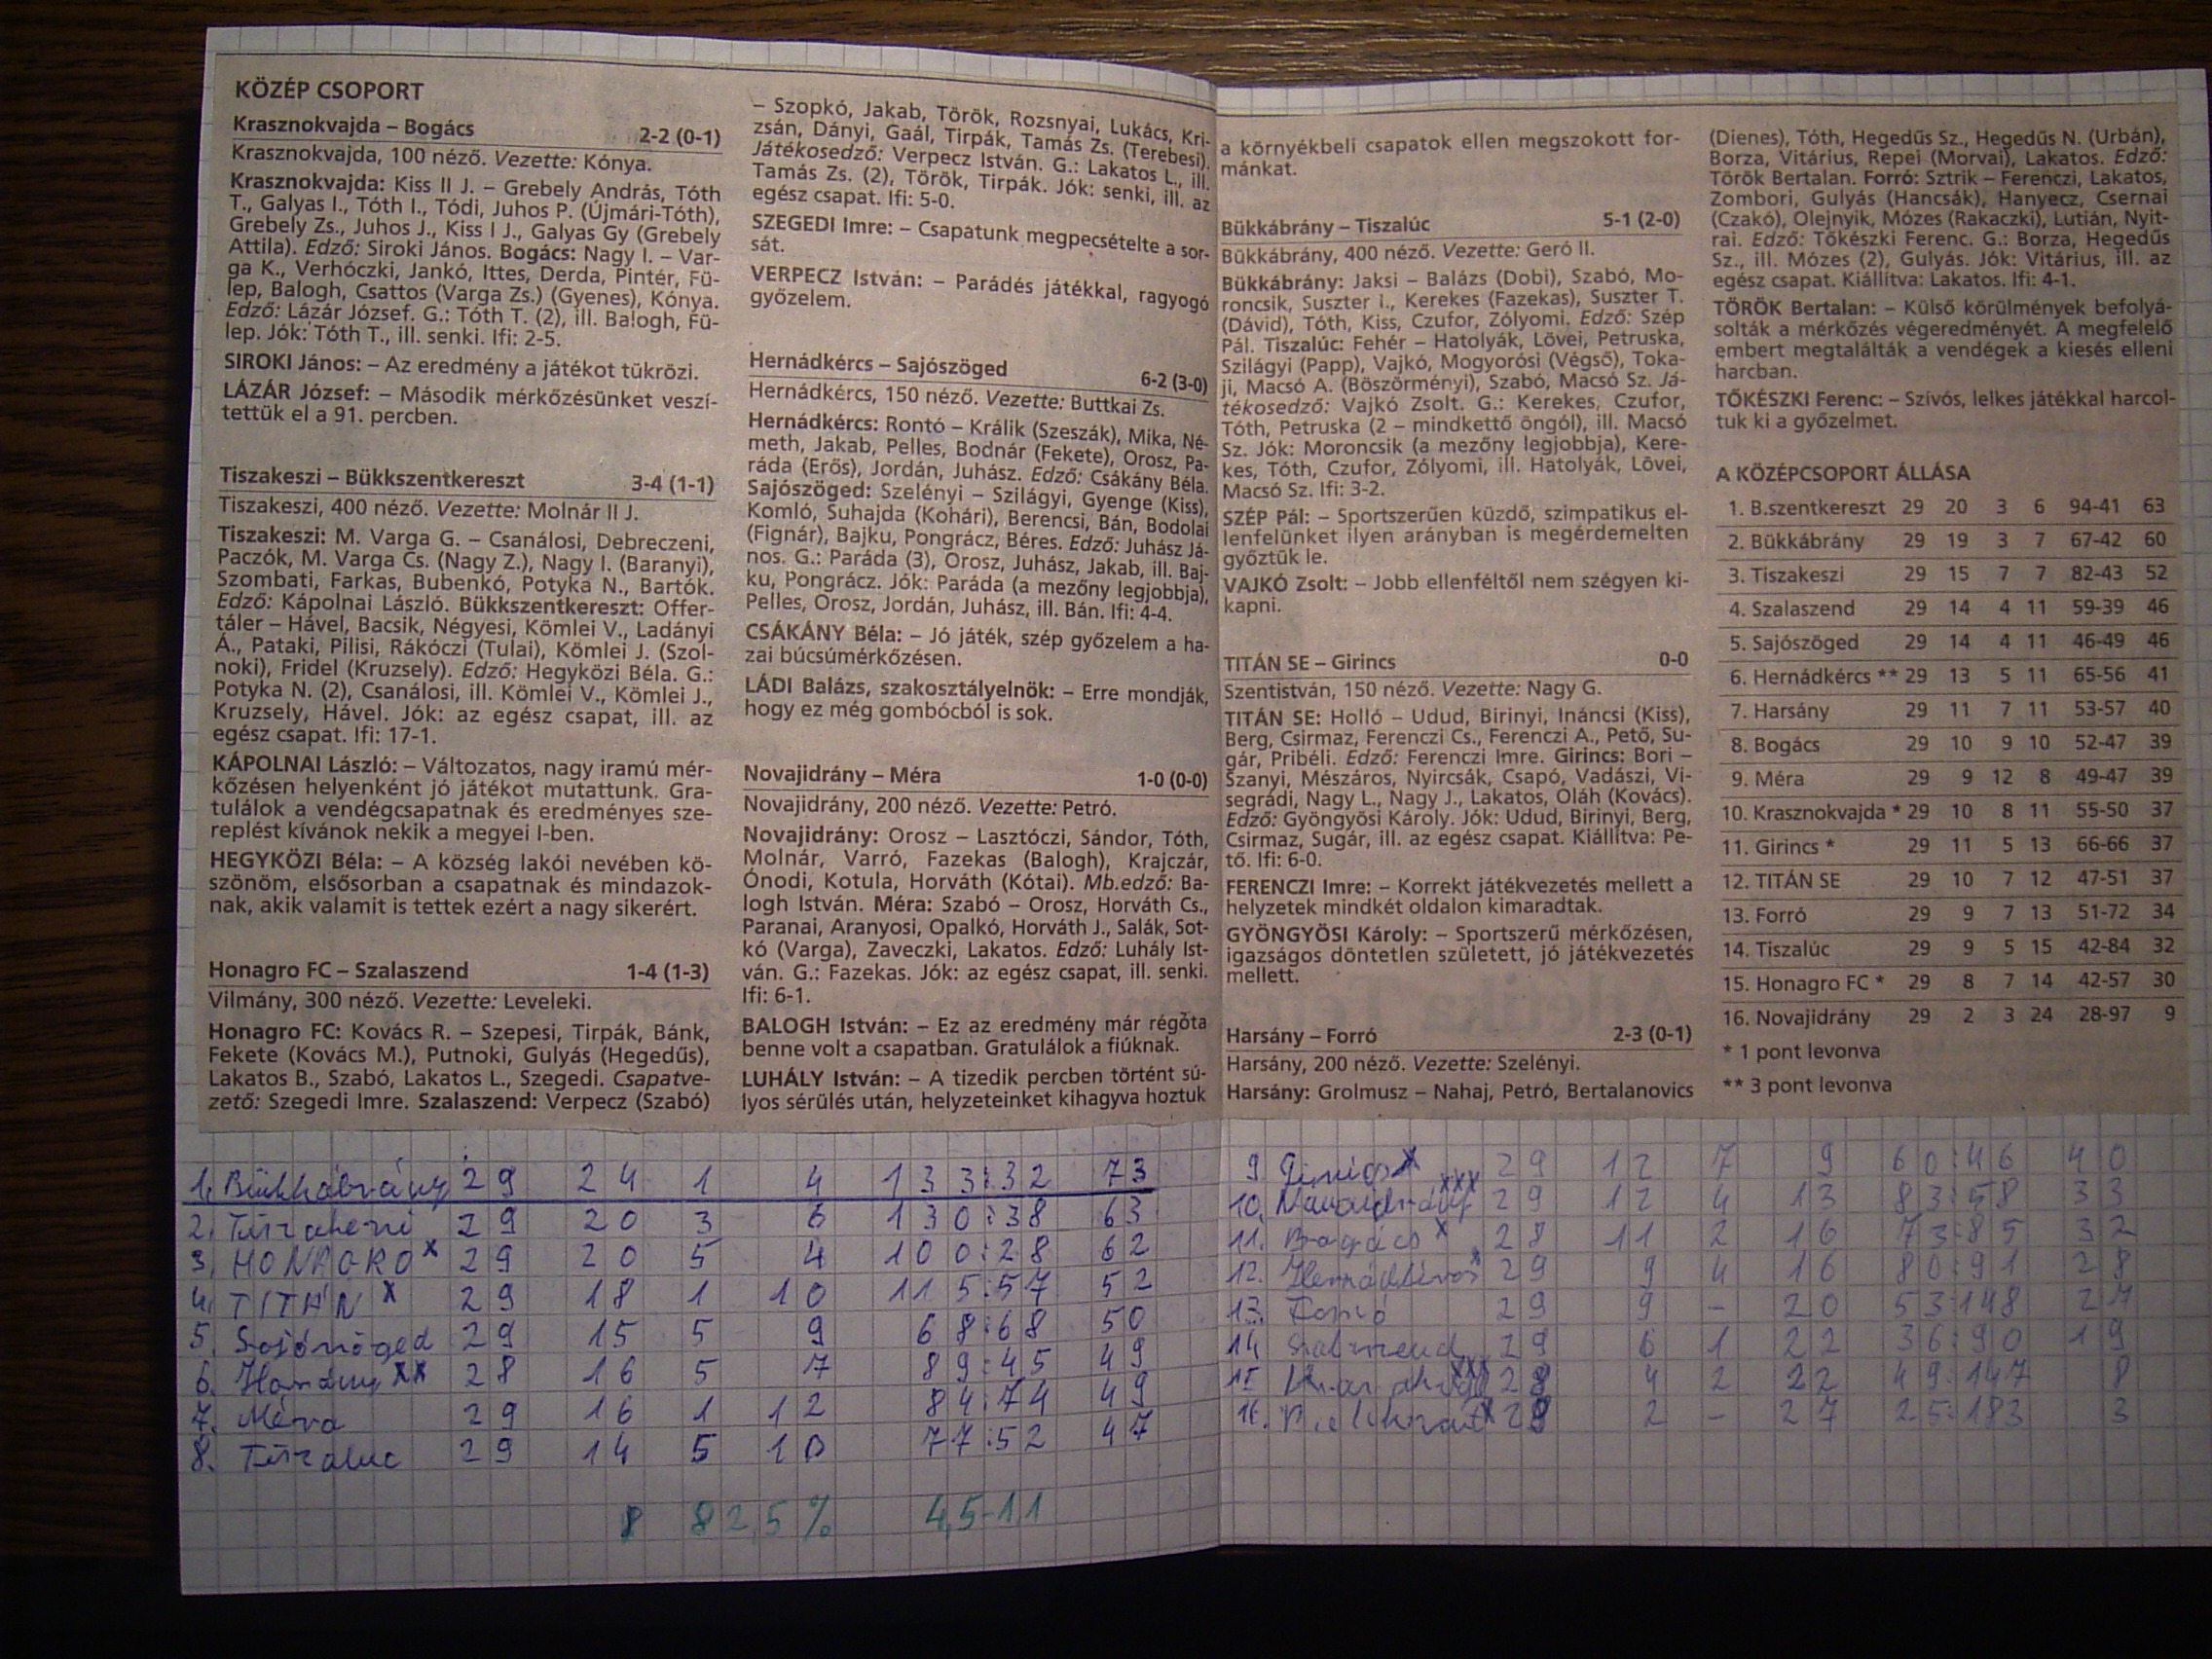 KÖZÉP CSOPORT
Krasznokvajda – Bogács 2-2 (0-1)
Krasznokvajda, 100 néző. Vezette: Kónya.
Krasznokvajda: Kiss II J. – Grebely András, Tóth
T., Galyas I., Tóth I., Tódi, Juhos P. (Újmári-Tóth),
Grebely Zs., Juhos J., Kiss I J., Galyas Gy (Grebely
Attila). Edző: Siroki János. Bogács: Nagy I. – Var-
ga K., Verhóczki, Jankó, Ittes, Derda, Pintér, Fü-
lep, Balogh, Csattos (Varga Zs.) (Gyenes), Kónya.
Edző: Lázár József. G.: Tóth T. (2), ill. Balogh, Fü-
lep. Jók: Tóth T., ill. senki. Ifi: 2-5.
SIROKI János: – Az eredmény a játékot tükrözi.
LÁZÁR József: – Második mérkőzésünket veszí-
tettük el a 91. percben.
Tiszakeszi – Bükkszentkereszt 3-4 (1-1)
Tiszakeszi, 400 néző. Vezette: Molnár II J.
Tiszakeszi: M. Varga G. – Csanálosi, Debreczeni,
Paczók, M. Varga Cs. (Nagy Z.), Nagy I. (Baranyi),
Szombati, Farkas, Bubenkó, Potyka N., Bartók.
Edző: Kápolnai László. Bükkszentkereszt: Offer-
táler – Hável, Bacsik, Négyesi, Kömlei V., Ladányi
Á., Pataki, Pilisi, Rákóczi (Tulai), Kömlei J. (Szol-
noki), Fridel (Kruzsely). Edző: Hegyközi Béla. G.:
Potyka N. (2), Csanálosi, ill. Kömlei V., Kömlei J.,
Kruzsely, Hável. Jók: az egész csapat, ill. az
egész csapat. Ifi: 17-1.
KÁPOLNAI László: – Változatos, nagy iramú mér-
kőzésen helyenként jó játékot mutattunk. Gra-
tulálok a vendégcsapatnak és eredményes sze-
replést kívánok nekik a megyei I-ben.
HEGYKÖZI Béla: – A község lakói nevében kö-
szönöm, elsősorban a csapatnak és mindazok-
nak, akik valamit is tettek ezért a nagy sikerért.
Honagro FC – Szalaszend 1-4 (1-3)
Vilmány, 300 néző. Vezette: Leveleki.
Honagro FC: Kovács R. – Szepesi, Tirpák, Bánk,
Fekete (Kovács M.), Putnoki, Gulyás (Hegedűs),
Lakatos B., Szabó, Lakatos L., Szegedi. Csapatve-
zető: Szegedi Imre. Szalaszend: Verpecz (Szabó)
– Szopkó, Jakab, Török, Rozsnyai, Lukács, Kri-
zsán, Dányi, Gaál, Tirpák, Tamás Zs. (Terebesi).
Játékosedző: Verpecz István. G.: Lakatos L., ill.
Tamás Zs. (2), Török, Tirpák. Jók: senki, ill. az
egész csapat. Ifi: 5-0.
SZEGEDI Imre: – Csapatunk megpecsételte a sor-
sát.
VERPECZ István: – Parádés játékkal, ragyogó
győzelem.
Hernádkércs – Sajószöged 6-2 (3-0)
Hernádkércs, 150 néző. Vezette: Buttkai Zs.
Hernádkércs: Rontó – Králik (Szeszák), Mika, Né-
meth, Jakab, Pelles, Bodnár (Fekete), Orosz, Pa-
ráda (Erős), Jordán, Juhász. Edző: Csákány Béla.
Sajószöged: Szelényi – Szilágyi, Gyenge (Kiss),
Komló, Suhajda (Kohári), Berencsi, Bán, Bodolai
(Fignár), Bajku, Pongrácz, Béres. Edző: Juhász Já-
nos. G.: Paráda (3), Orosz, Juhász, Jakab, ill. Baj-
ku, Pongrácz. Jók: Paráda (a mezőny legjobbja),
Pelles, Orosz, Jordán, Juhász, ill. Bán. Ifi: 4-4.
CSÁKÁNY Béla: – Jó játék, szép győzelem a ha-
zai búcsúmérkőzésen.
LÁDI Balázs, szakosztályelnök: – Erre mondják,
hogy ez még gombócból is sok.
Novajidrány – Méra 1-0 (0-0)
Novajidrány, 200 néző. Vezette: Petró.
Novajidrány: Orosz – Lasztóczi, Sándor, Tóth,
Molnár, Varró, Fazekas (Balogh), Krajczár,
Ónodi, Kotula, Horváth (Kótai). Mb.edző: Ba-
logh István. Méra: Szabó – Orosz, Horváth Cs.,
Paranai, Aranyosi, Opalkó, Horváth J., Salák, Sot-
kó (Varga), Zaveczki, Lakatos. Edző: Luhály Ist-
ván. G.: Fazekas. Jók: az egész csapat, ill. senki.
Ifi: 6-1.
BALOGH István: – Ez az eredmény már régóta
benne volt a csapatban. Gratulálok a fiúknak.
LUHÁLY István: – A tizedik percben történt sú-
lyos sérülés után, helyzeteinket kihagyva hoztuk
a környékbeli csapatok ellen megszokott for-
mánkat.
Bükkábrány – Tiszalúc 5-1 (2-0)
Bükkábrány, 400 néző. Vezette: Geró II.
Bükkábrány: Jaksi – Balázs (Dobi), Szabó, Mo-
roncsik, Suszter I., Kerekes (Fazekas), Suszter T.
(Dávid), Tóth, Kiss, Czufor, Zólyomi. Edző: Szép
Pál. Tiszalúc: Fehér – Hatolyák, Lövei, Petruska,
Szilágyi (Papp), Vajkó, Mogyorósi (Végső), Toka-
ji, Macsó A. (Böszörményi), Szabó, Macsó Sz. Já-
tékosedző: Vajkó Zsolt. G.: Kerekes, Czufor,
Tóth, Petruska (2 – mindkettő öngól), ill. Macsó
Sz. Jók: Moroncsik (a mezőny legjobbja), Kere-
kes, Tóth, Czufor, Zólyomi, ill. Hatolyák, Lövei,
Macsó Sz. Ifi: 3-2.
SZÉP Pál: – Sportszerűen küzdő, szimpatikus el-
lenfelünket ilyen arányban is megérdemelten
győztük le.
VAJKÓ Zsolt: – Jobb ellenféltől nem szégyen ki-
kapni.
TITÁN SE – Girincs 0-0
Szentistván, 150 néző. Vezette: Nagy G.
TITÁN SE: Holló – Udud, Birinyi, Ináncsi (Kiss),
Berg, Csirmaz, Ferenczi Cs., Ferenczi A., Pető, Su-
gár, Pribéli. Edző: Ferenczi Imre. Girincs: Bori –
Szanyi, Mészáros, Nyircsák, Csapó, Vadászi, Vi-
segrádi, Nagy L., Nagy J., Lakatos, Oláh (Kovács).
Edző: Gyöngyösi Károly. Jók: Udud, Birinyi, Berg,
Csirmaz, Sugár, ill. az egész csapat. Kiállítva: Pe-
tő. Ifi: 6-0.
FERENCZI Imre: – Korrekt játékvezetés mellett a
helyzetek mindkét oldalon kimaradtak.
GYÖNGYÖSI Károly: – Sportszerű mérkőzésen,
igazságos döntetlen született, jó játékvezetés
mellett.
Harsány – Forró 2-3 (0-1)
Harsány, 200 néző. Vezette: Szelényi.
Harsány: Grolmusz – Nahaj, Petró, Bertalanovics
(Dienes), Tóth, Hegedűs Sz., Hegedűs N. (Urbán),
Borza, Vitárius, Repei (Morvai), Lakatos. Edző:
Török Bertalan. Forró: Sztrik – Ferenczi, Lakatos,
Zombori, Gulyás (Hancsák), Hanyecz, Csernai
(Czakó), Olejnyik, Mózes (Rakaczki), Lutián, Nyit-
rai. Edző: Tőkészki Ferenc. G.: Borza, Hegedűs
Sz., ill. Mózes (2), Gulyás. Jók: Vitárius, ill. az
egész csapat. Kiállítva: Lakatos. Ifi: 4-1.
TÖRÖK Bertalan: – Külső körülmények befolyá-
solták a mérkőzés végeredményét. A megfelelő
embert megtalálták a vendégek a kiesés elleni
harcban.
TŐKÉSZKI Ferenc: – Szívós, lelkes játékkal harcol-
tuk ki a győzelmet.
A KÖZÉPCSOPORT ÁLLÁSA
1. B.szentkereszt 29 20 3 6 94-41 63
2. Bükkábrány 29 19 3 7 67-42 60
3. Tiszakeszi 29 15 7 7 82-43 52
4. Szalaszend 29 14 4 11 59-39 46
5. Sajószöged 29 14 4 11 46-49 46
6. Hernádkércs ** 29 13 5 11 65-56 41
7. Harsány 29 11 7 11 53-57 40
8. Bogács 29 10 9 10 52-47 39
9. Méra 29 9 12 8 49-47 39
10. Krasznokvajda * 29 10 8 11 55-50 37
11. Girincs * 29 11 5 13 66-66 37
12. TITÁN SE 29 10 7 12 47-51 37
13. Forró 29 9 7 13 51-72 34
14. Tiszalúc 29 9 5 15 42-84 32
15. Honagro FC * 29 8 7 14 42-57 30
16. Novajidrány 29 2 3 24 28-97 9
* 1 pont levonva
** 3 pont levonva
1. Bükkábrány 29 24 1 4 133:32 73
2. Tiszakeszi 29 20 3 6 130:38 63
3. HONAGRO x 29 20 5 4 100:28 62
4. TITÁN x 29 18 1 10 115:57 52
5. Sajószöged 29 15 5 9 68:68 50
6. Harsány xx 28 16 5 7 89:45 49
7. Méra 29 16 1 12 84:74 49
8. Tiszaluc 29 14 5 10 77:52 47
8 82,5% 4,5-11
9. Girincs x 29 12 7 9 60:46 40
10. Novajidrány xxx 29 12 4 13 83:58 33
11. Bogács x 28 11 2 16 73:85 32
12. x 29 9 4 16 80:91 28
13. Forró 29 9 – 20 53:148 27
14. Szalaszend 29 6 1 22 36:90 19
15 xxx 28 4 2 22 49:147 8
16. x 2 – 27 25:183 3